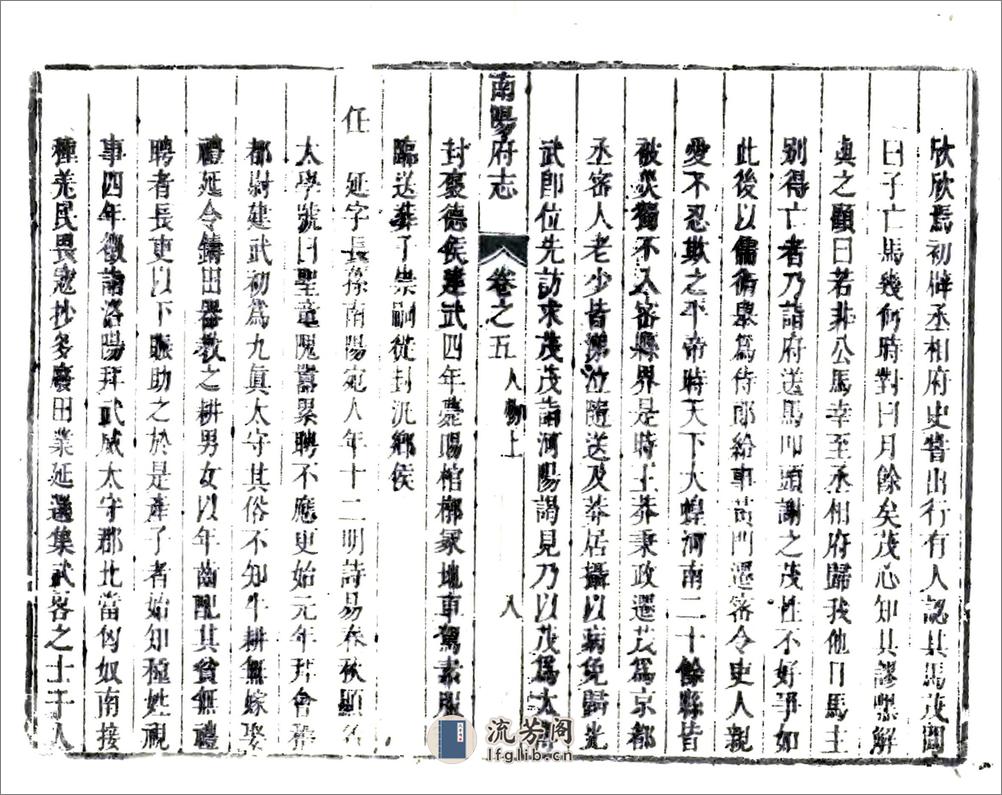 欣欣焉初辟丞相府史嘗出行有人認其馬茂問
曰子亡馬幾何時對曰月餘矣茂心知其謬嘿解
與之顧曰若非公馬幸至丞相府歸我他日馬主
别得亡者乃詣府送馬叩頭謝之茂性不好爭如
此後以儒術舉為侍郎給事黃門遷密令吏人親
愛不忍欺之平帝時天下大蝗河南二十餘縣皆
被災獨不入密縣界是時王莽秉政遷茂為京都
丞密人老少皆涕泣隨送及莽居攝以病免歸光
武即位先訪求茂茂詣河陽謁見乃以茂為太傅
封褒德侯建武四年薨賜棺槨冢地車駕素服
臨送葬子崇嗣徙封汎鄉侯
南陽府志 卷之五 人物上 八
任 延字長孫南陽宛人年十二明詩易春秋顯名
太學號曰聖童隗囂累聘不應更始元年拜會稽
都尉建武初為九真太守其俗不知牛耕無嫁娶
禮延令鑄田器教之耕男女以年齒配其貧無禮
聘者長吏以下賑助之於是產子者始知種姓視
事四年徵詣洛陽拜武威太守郡北當匈奴南接
種羌民畏寇抄多廢田業延選集武客之士千人
流芳阁
lfglib.cn